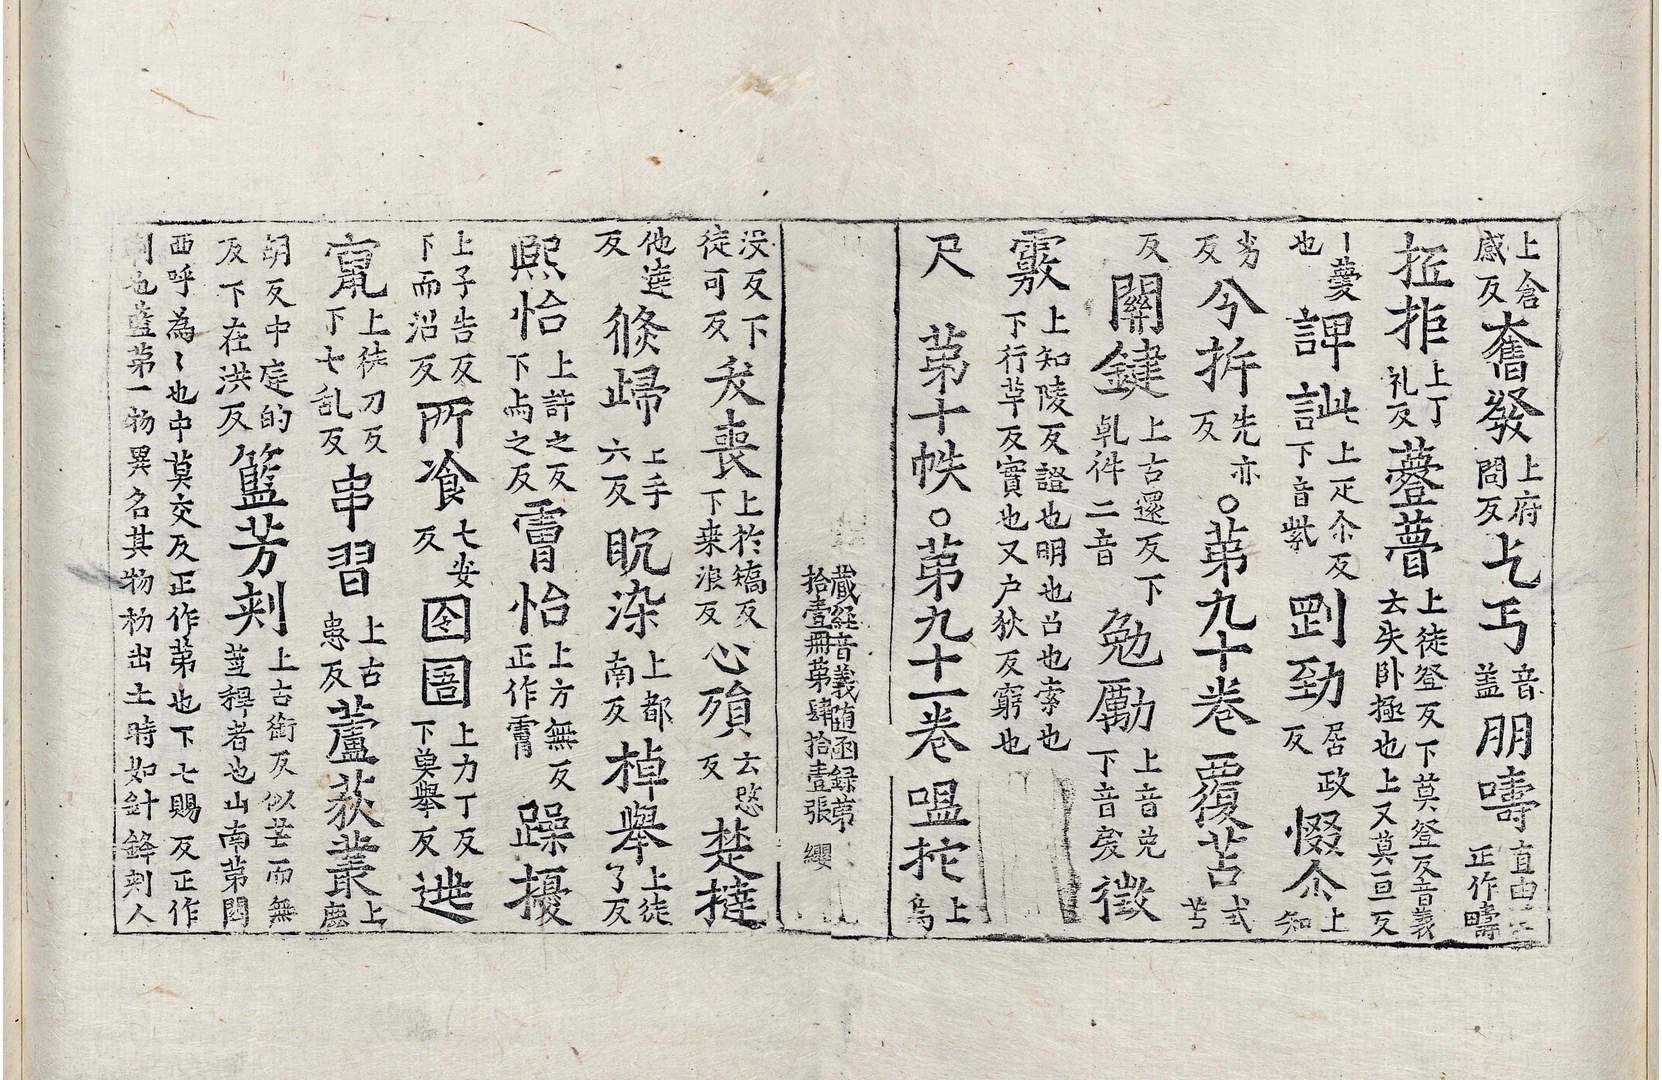 上倉感反奮發上府問反乞丐音盖朋嚋直由正作疇
抂拒上丁礼反薹瞢上徒登反下莫登反音義云失卧極也上又莫亘反
丨薆也諀訿上疋尒反下音紫剄勁居政反惙尒上知
劣反兮㧁先亦反。苐九十卷覆苫式苫
反關鍵上古還反下乹件二音勉勵上音免下音戾徵
覈上知陵反證也明也召也索也下行革反實也又户狄反窮也
尺苐十帙。苐九十一卷嗢柁上烏
藏経音義随函録苐拾壹冊苐肆拾壹張纓
没反下徒可反夭喪上於矯反下桒浪反心殞云愍反楚撻
他達反倏歸上手六反眈染上都南反棹舉上徒了反
熈怡上許之反下与之反霌怡上方無反正作霌躁擾
上子告反下而沼反所飡七安反囹圄上力丁反下奠舉反逃
竄上徒刀反下七乱反串習上古患反蘆荻叢上
胡反中庭的反下在洪反籃芳刾上古銜反似芒而無莖稈者也山南苐閻
西呼為〻也中莫交反正作苐也下七賜反正作刾也藍苐一物異名其物杪出土時如針鋒刾人